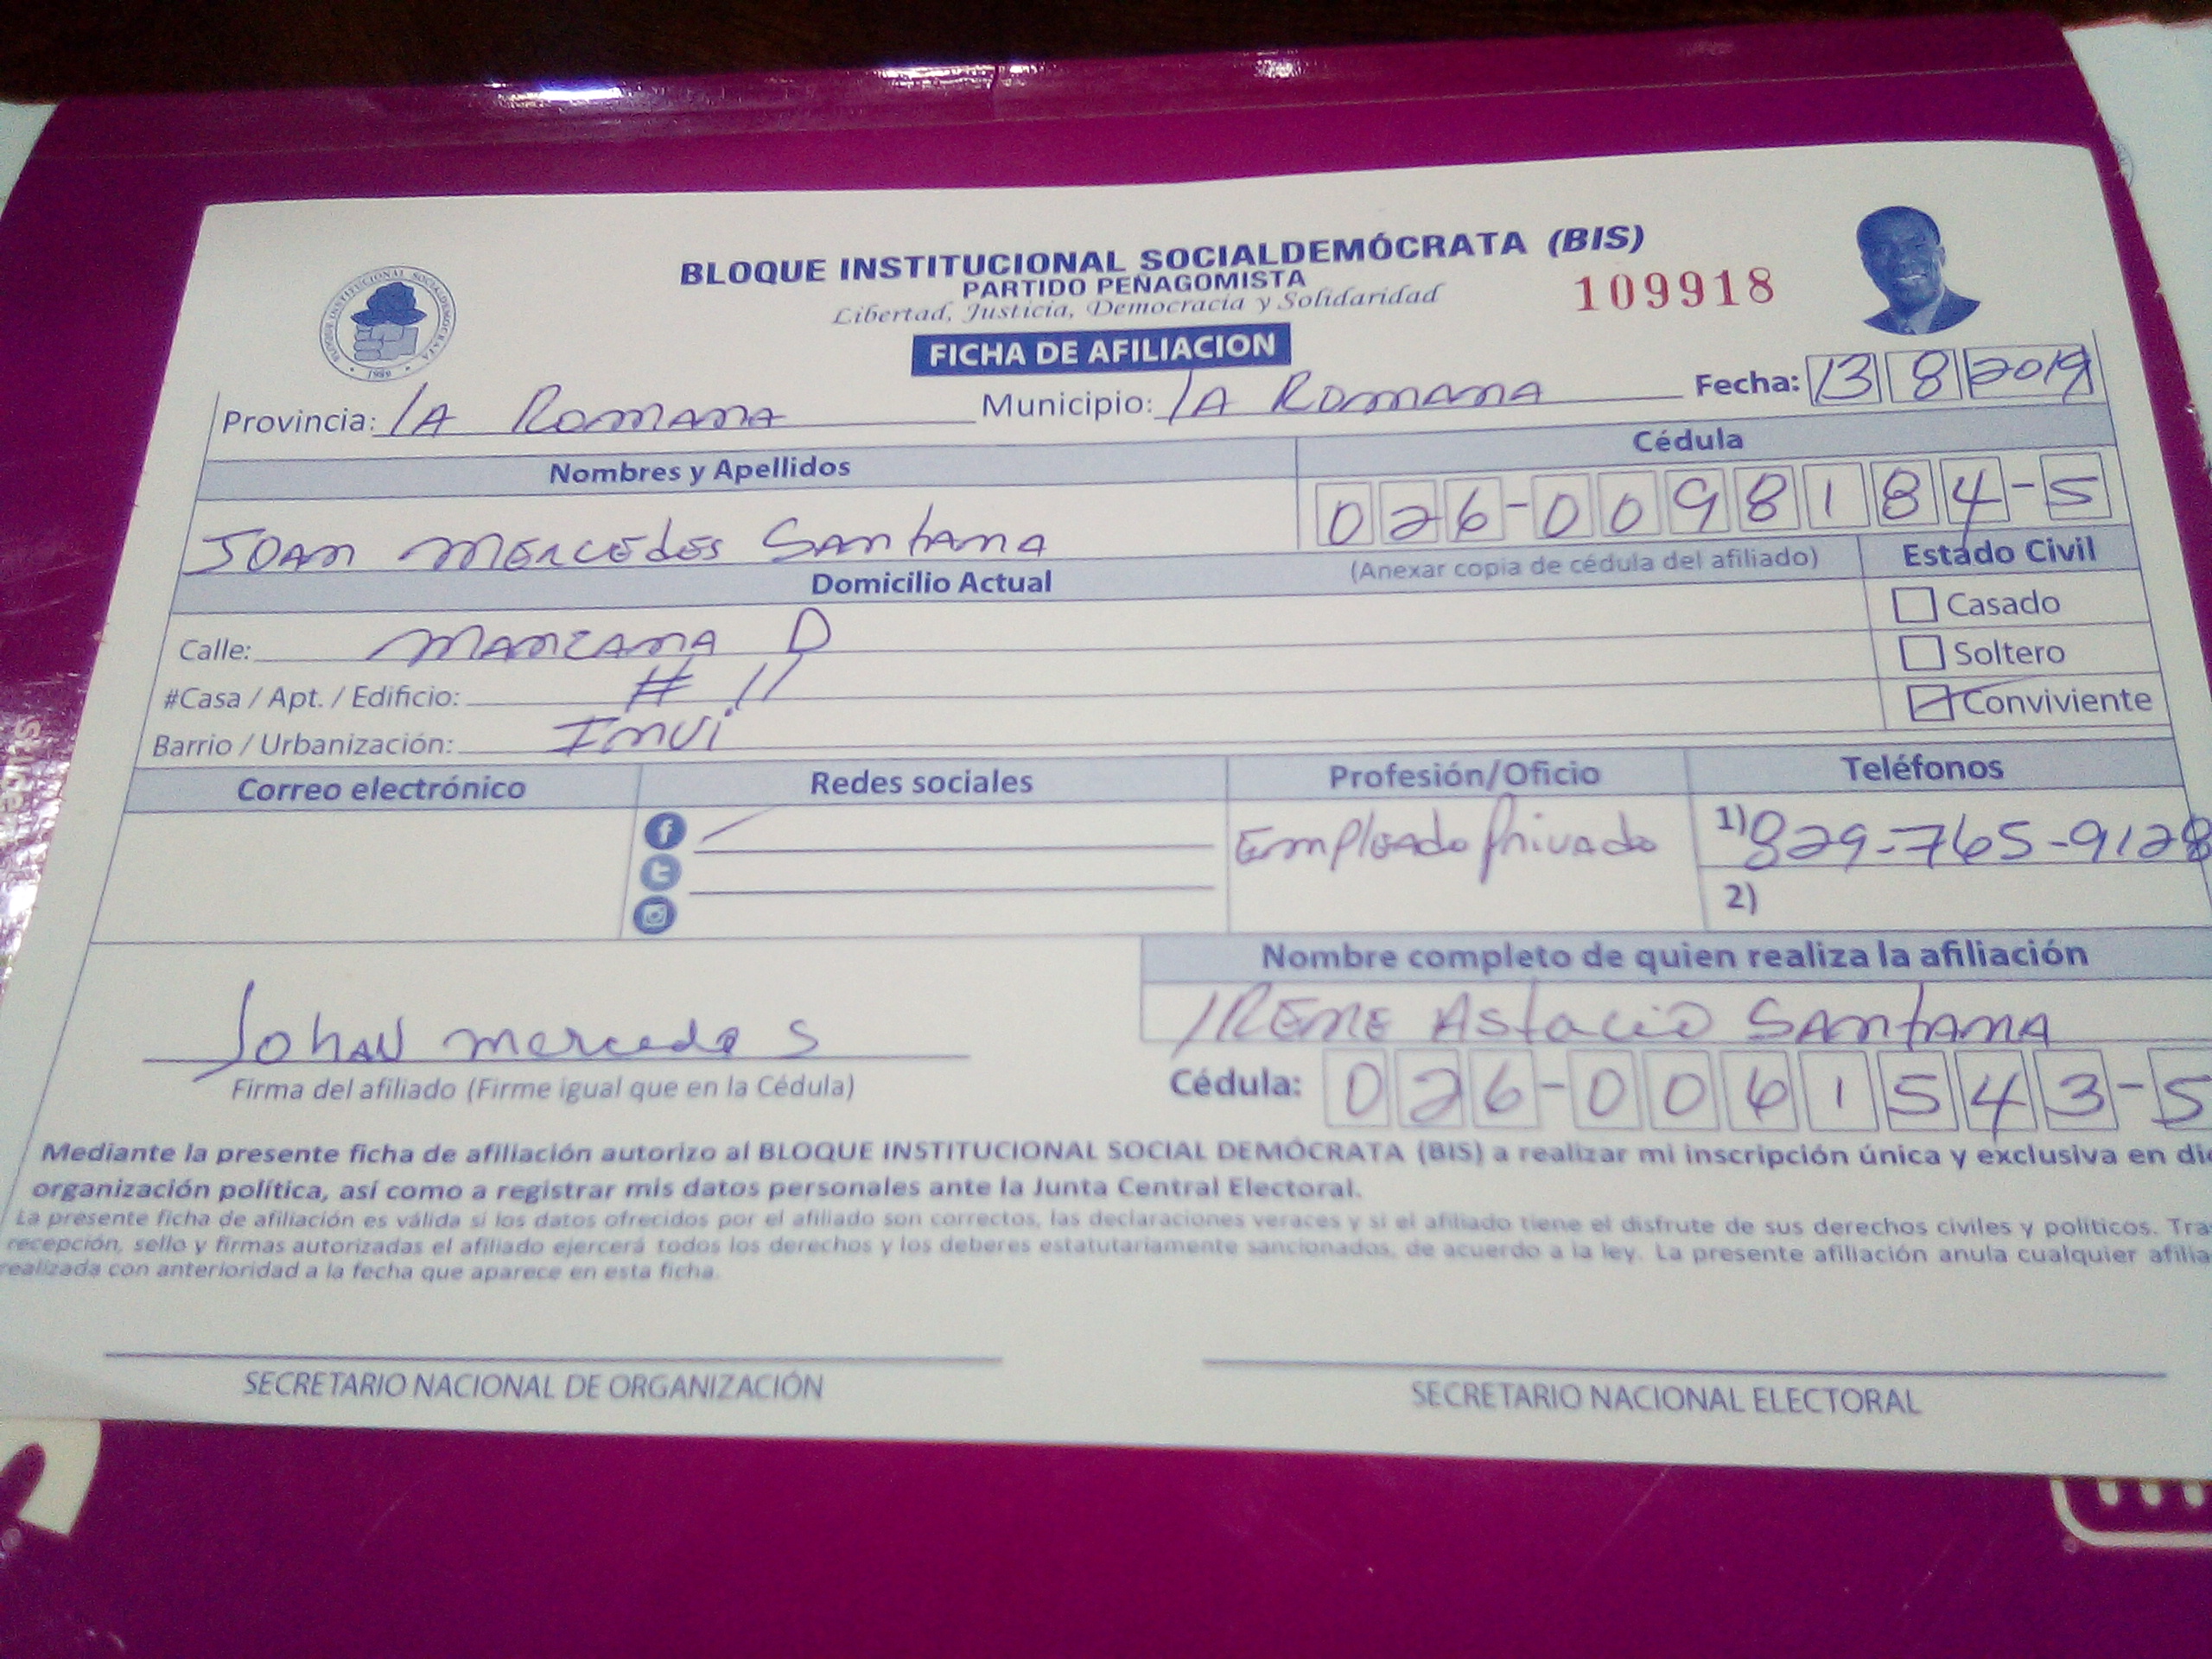 BLOQUE INSTITUCIONAL SOCIALDEMÓCRATA (BIS)
PARTIDO PEÑAGOMISTA
Libertad, Justicia, Democracia y Solidaridad
109918
BLOQUE INSTITUCIONAL SOCIALDEMOCRATA
FICHA DE AFILIACION
Provincia: LA ROMANA Municipio: LA ROMANA Fecha: 13 8 2019
Nombres y Apellidos Cédula
JOAN MERCEDES SANTANA 026-0098184-5
Domicilio Actual (Anexar copia de cédula del afiliado) Estado Civil
Calle: MANZANA D Casado
#Casa / Apt. / Edificio: # 11 Soltero
Barrio / Urbanización: Invi Conviviente
Correo electrónico Redes sociales Profesión/Oficio Teléfonos
Empleado Privado 1) 829-765-9128
2)
Nombre completo de quien realiza la afiliación
IRENE Astacio SANTANA
Johan mercedes
Firma del afiliado (Firme igual que en la Cédula) Cédula: 026-0061543-5
Mediante la presente ficha de afiliación autorizo al BLOQUE INSTITUCIONAL SOCIAL DEMÓCRATA (BIS) a realizar mi inscripción única y exclusiva en dic
organización política, así como a registrar mis datos personales ante la Junta Central Electoral.
La presente ficha de afiliación es válida si los datos ofrecidos por el afiliado son correctos, las declaraciones veraces y si el afiliado tiene el disfrute de sus derechos civiles y políticos. Tra
recepción, sello y firmas autorizadas el afiliado ejercerá todos los derechos y los deberes estatutariamente sancionados, de acuerdo a la ley. La presente afiliación anula cualquier afilia
realizada con anterioridad a la fecha que aparece en esta ficha.
SECRETARIO NACIONAL DE ORGANIZACIÓN SECRETARIO NACIONAL ELECTORAL